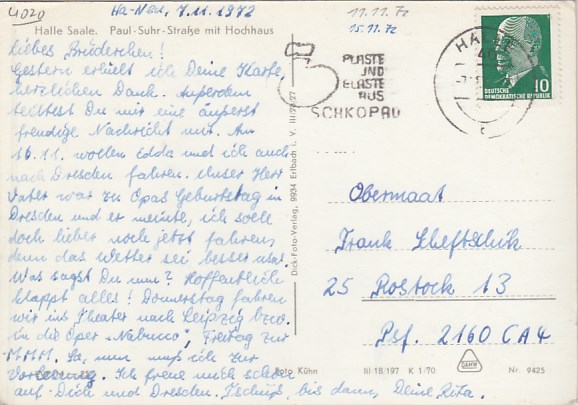 4020
Ha-Neu, 7.11.1972
11.11.72
15.11.72
Halle Saale. Paul-Suhr-Straße mit Hochhaus
liebes Brüderchen!
Gestern erhielt ich Deine Karte,
herzlichen Dank. Außerdem
teiltest Du mir eine äußerst
freudige Nachricht mit. Am
16.11. wollen Edda und ich auch
nach Dresden fahren. Unser Herr
Vater war zu Opas Geburtstag in
Dresden und er meinte, ich solle
doch lieber noch jetzt fahren,
denn das Wetter sei besser usw.
Was sagst Du nun? Hoffentlich
klappt alles! Donnerstag fahren
wir ins Theater nach Leipzig bzw.
in die Oper „Nabucco", Freitag zur
MMM. So, nun muß ich zur
Vorlesung. Ich freue mich schon
auf Dich und Dresden. Tschüß, bis dann, Deine Rita.
Dick-Foto-Verlag, 9934 Erlbach i. V. III/28/27
PLASTE
UND
ELASTE
AUS
SCHKOPAU
HA
10
DEUTSCHE
DEMOKRATISCHE REPUBLIK
Obermaat
Frank
25 Rostock 13
Psf. 2160 CA4
Foto Kühn
III-18/197 K 1/70
Nr. 9425